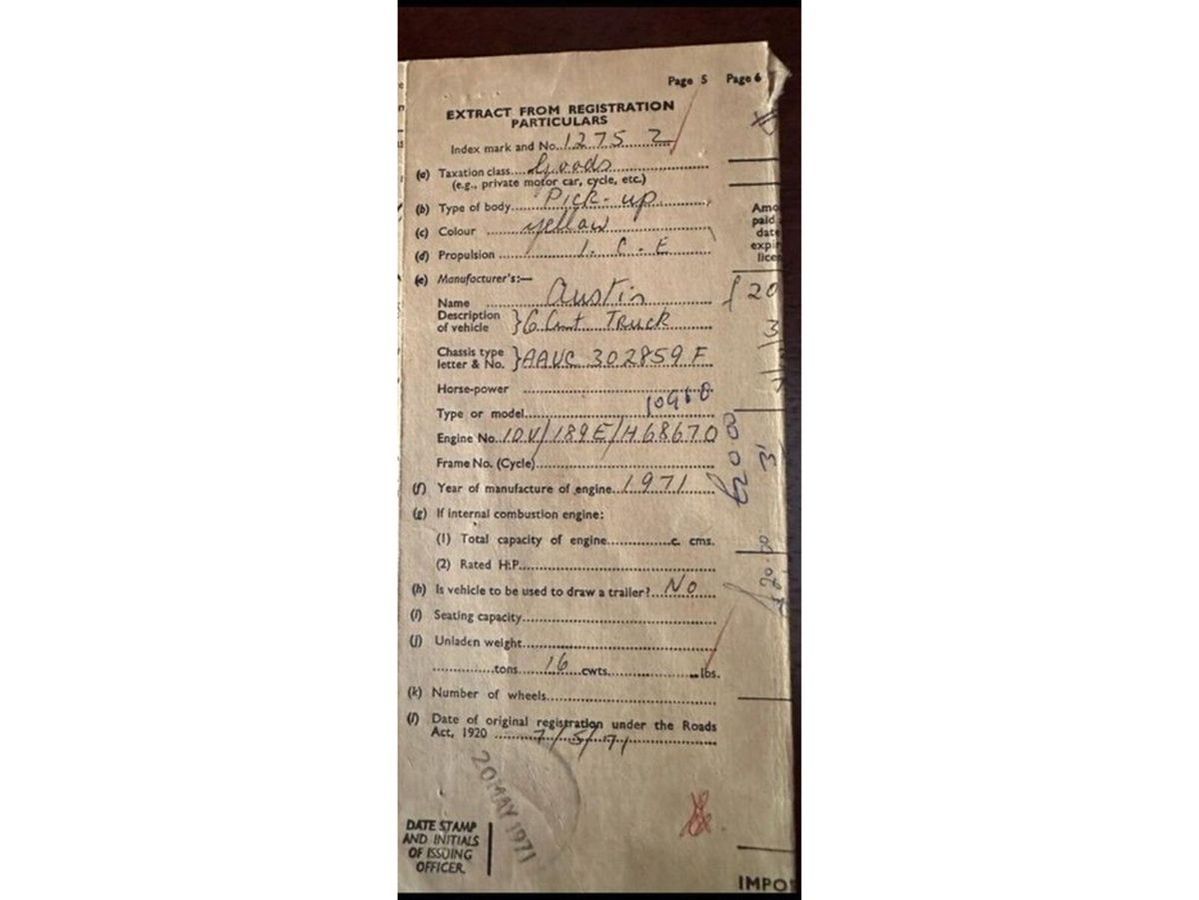 Page 5 Page 6
EXTRACT FROM REGISTRATION
PARTICULARS
Index mark and No. 1275 Z
(a) Taxation class Goods
(e.g., private motor car, cycle, etc.)
(b) Type of body Pick-up
(c) Colour yellow
(d) Propulsion I.C.E
(e) Manufacturer's:—
Name Austin
Description
of vehicle } 6 Cwt Truck
Chassis type
letter & No. } AAVC 302859 F
Horse-power
Type or model
Engine No. 10V/189E/H68670
Frame No. (Cycle)
(f) Year of manufacture of engine 1971
(g) If internal combustion engine:
(1) Total capacity of engine c. cms.
(2) Rated H.P.
(h) Is vehicle to be used to draw a trailer? No
(i) Seating capacity
(j) Unladen weight
tons 16 cwts. lbs.
(k) Number of wheels
(l) Date of original registration under the Roads
Act, 1920 7/5/71
20 MAY 1971
DATE STAMP
AND INITIALS
OF ISSUING
OFFICER
Amo
paid
date
expir
lice
£20
£20.00
£20.00
IMPO